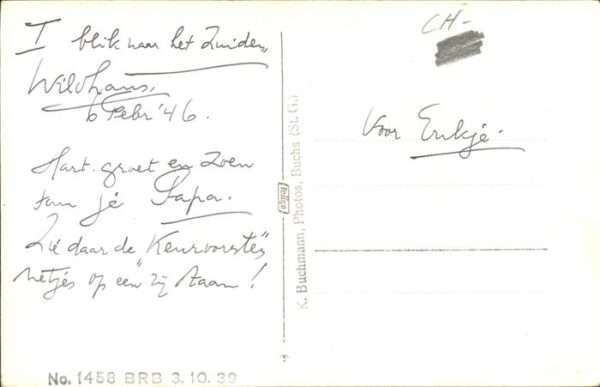 I blik naar het Zuiden,
Wildhaus,
6 Febr '46.
Hart. groet en zoen
van je Papa.
Zie daar de "Keurvorsten"
netjes op een rij staan!
No. 1458 BRB 3.10.39
K. Buchmann, Photos, Buchs (St. G.)
CH-
Voor Erikje.